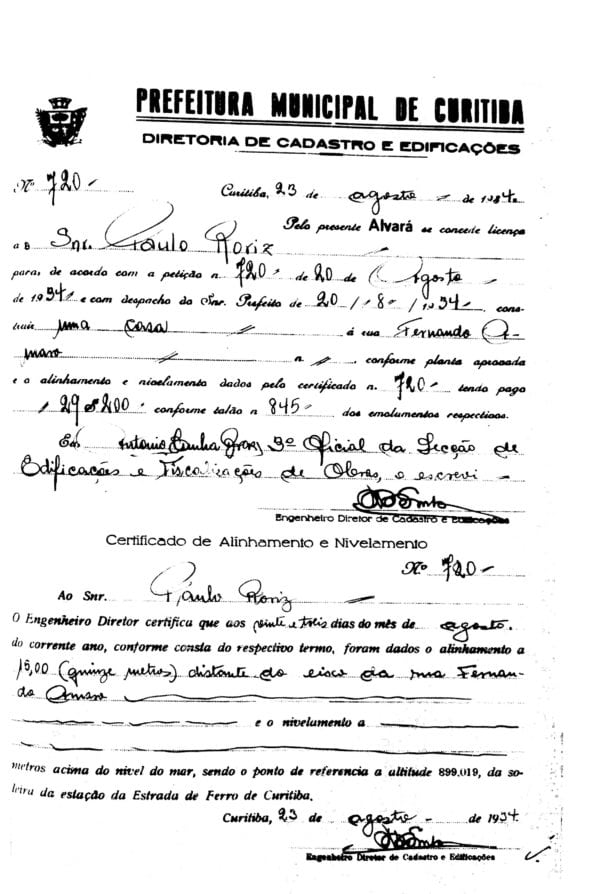 PREFEITURA MUNICIPAL DE CURITIBA
DIRETORIA DE CADASTRO E EDIFICAÇÕES
Nº 720-
Curitiba, 23 de agosto - de 1934
Pelo presente Alvará se concede licença
a o Snr. Paulo Roriz
para, de acordo com a petição n. 720- de 20 de Agosto
de 1934- e com despacho do Snr. Prefeito de 20/-8-/1934-, cons-
truir uma casa á rua Fernando A-
maro n , conforme planta aprovada
e o alinhamento e nivelamento dados pelo certificado n. 720- tendo pago
129$200- conforme talão n 845- dos emolumentos respectivos.
Eu, Antonio Cunha 3º Oficial da Secção de
Edificações e Fiscalizações de Obras, o escrevi -
Engenheiro Diretor de Cadastro e Edificações
Certificado de Alinhamento e Nivelamento
Nº 720-
Ao Snr. Paulo Roriz
O Engenheiro Diretor certifica que aos vinte e três dias do mês de agosto.
do corrente ano, conforme consta do respectivo termo, foram dados o alinhamento a
15,00 (quinze metros) distante do eixo da rua Fernan-
do Amaro
e o nivelamento a
metros acima do nivel do mar, sendo o ponto de referencia a altitude 899,019, da so-
leira da estação da Estrada de Ferro de Curitiba.
Curitiba, 23 de agosto - de 1934.
Engenheiro Diretor de Cadastro e Edificações